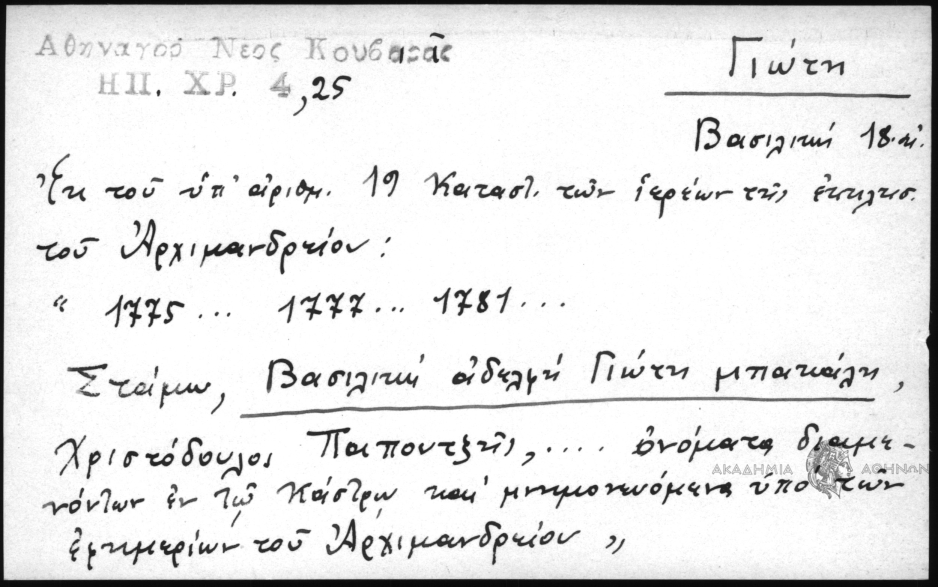 Ἀθηναγόρ Νέος Κουβαρᾶς
ΗΠ. ΧΡ. 4, 25
Γιώτη
Βασιλική 18.αἰ.
Ἐκ τοῦ ὑπ' ἀριθμ. 19 Καταστ. τῶν ἱερέων τῆς ἐκκλησ.
τοῦ Ἀρχιμανδρείου:
“ 1775 ... 1777 ... 1781 ...
Στάμω, Βασιλική ἀδελφή Γιώτη μπακάλη,
Χριστόδουλος Παπουτζῆς, .... ὀνόματα διαμε-
νόντων ἐν τῷ Κάστρῳ καί μνημονευόμενα ὑπό τῶν
ἐφημερίων τοῦ Ἀρχιμανδρείου „
ΑΚΑΔΗΜΙΑ ΑΘΗΝΩΝ